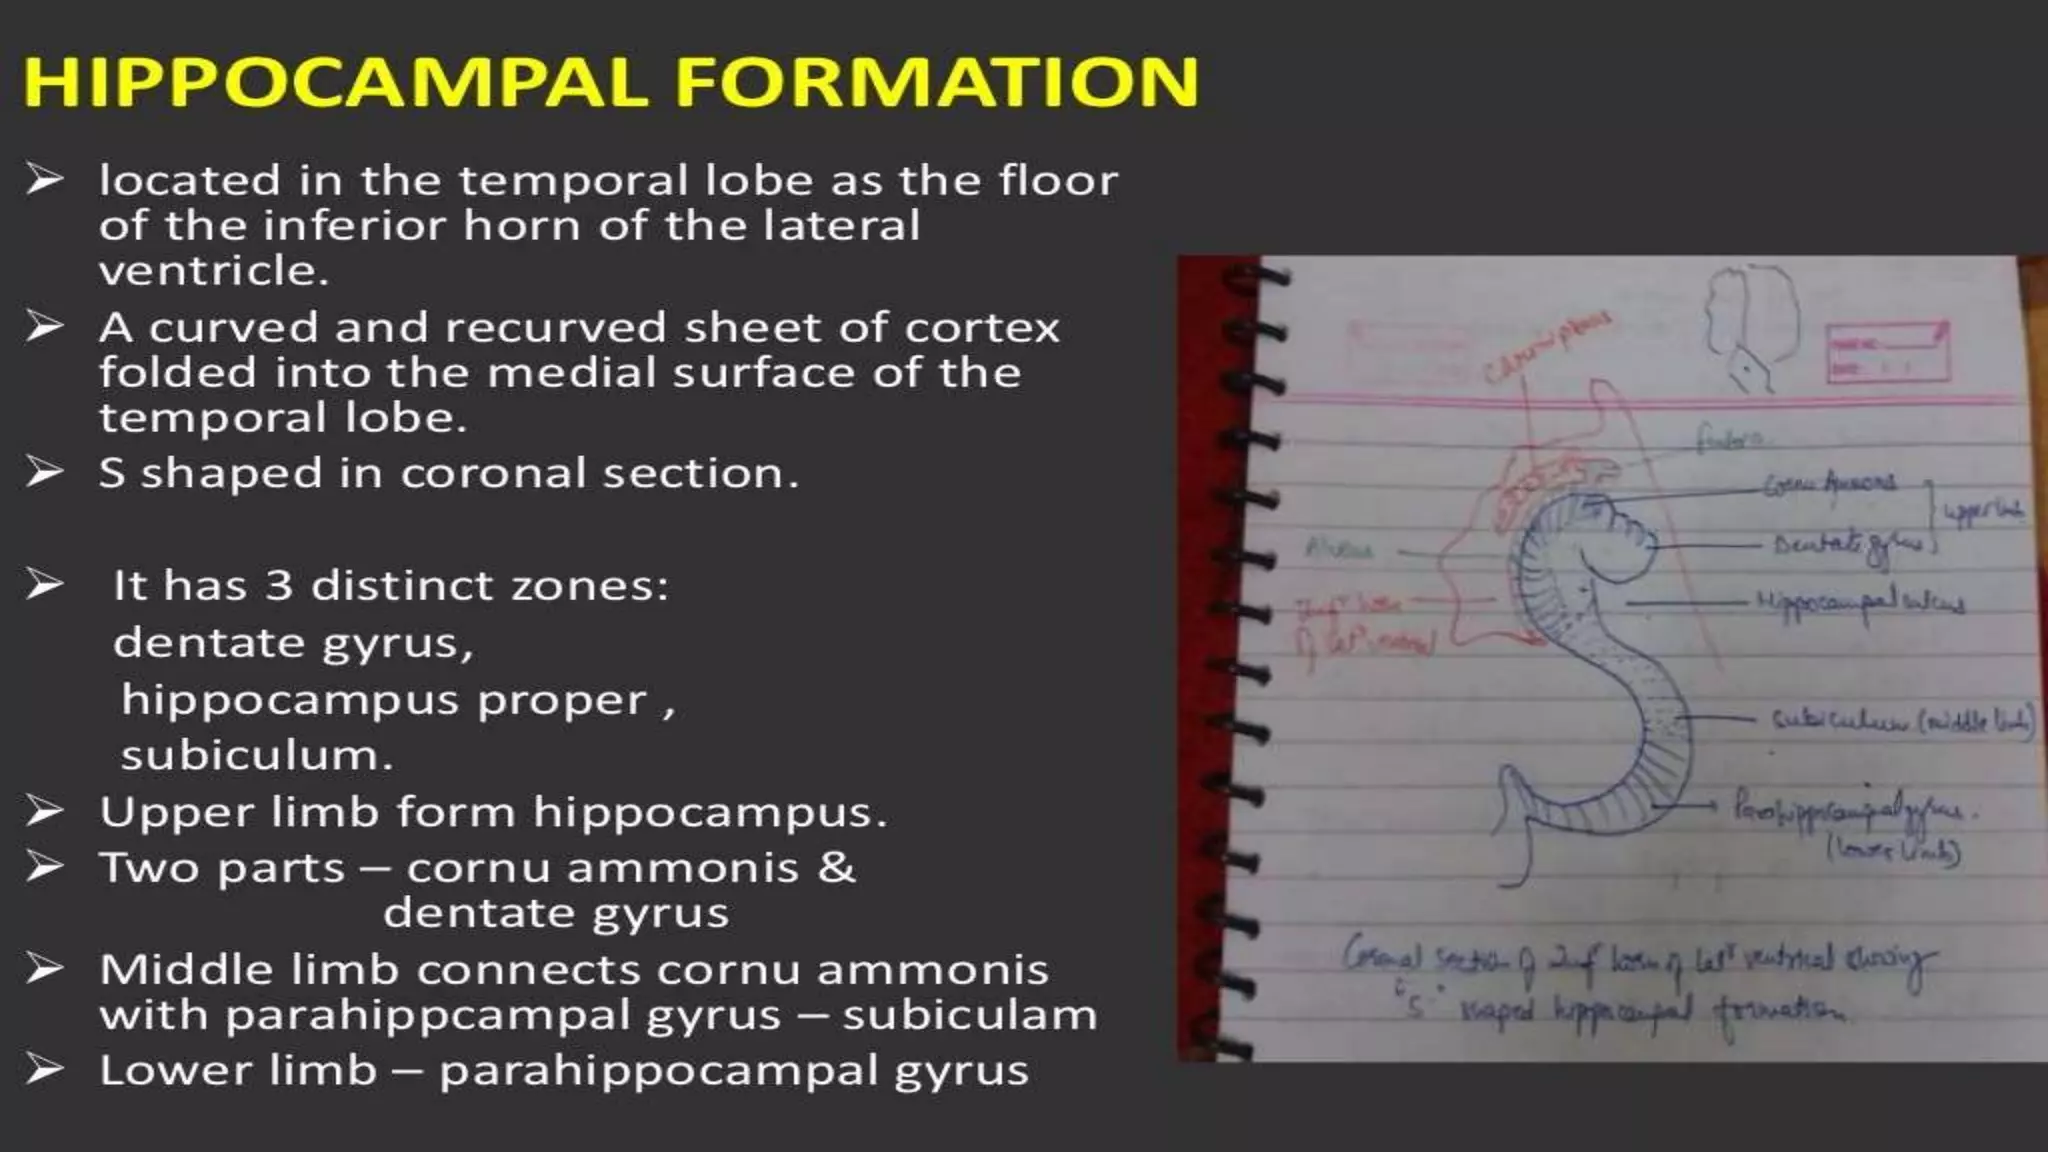 HIPPOCAMPAL FORMATION
➢ located in the temporal lobe as the floor
of the inferior horn of the lateral
ventricle.
➢ A curved and recurved sheet of cortex
folded into the medial surface of the
temporal lobe.
➢ S shaped in coronal section.
➢ It has 3 distinct zones:
dentate gyrus,
hippocampus proper ,
subiculum.
➢ Upper limb form hippocampus.
➢ Two parts – cornu ammonis &
dentate gyrus
➢ Middle limb connects cornu ammonis
with parahippcampal gyrus – subiculam
➢ Lower limb – parahippocampal gyrus
Alveus
Cornu Ammonis
upper limb
Dentate gyrus
Hippocampal sulcus
Subiculum (middle limb)
Parahippocampal gyrus.
(lower limb)
Coronal section of Inf horn of latr ventrical showing
"S" shaped hippocampal formation